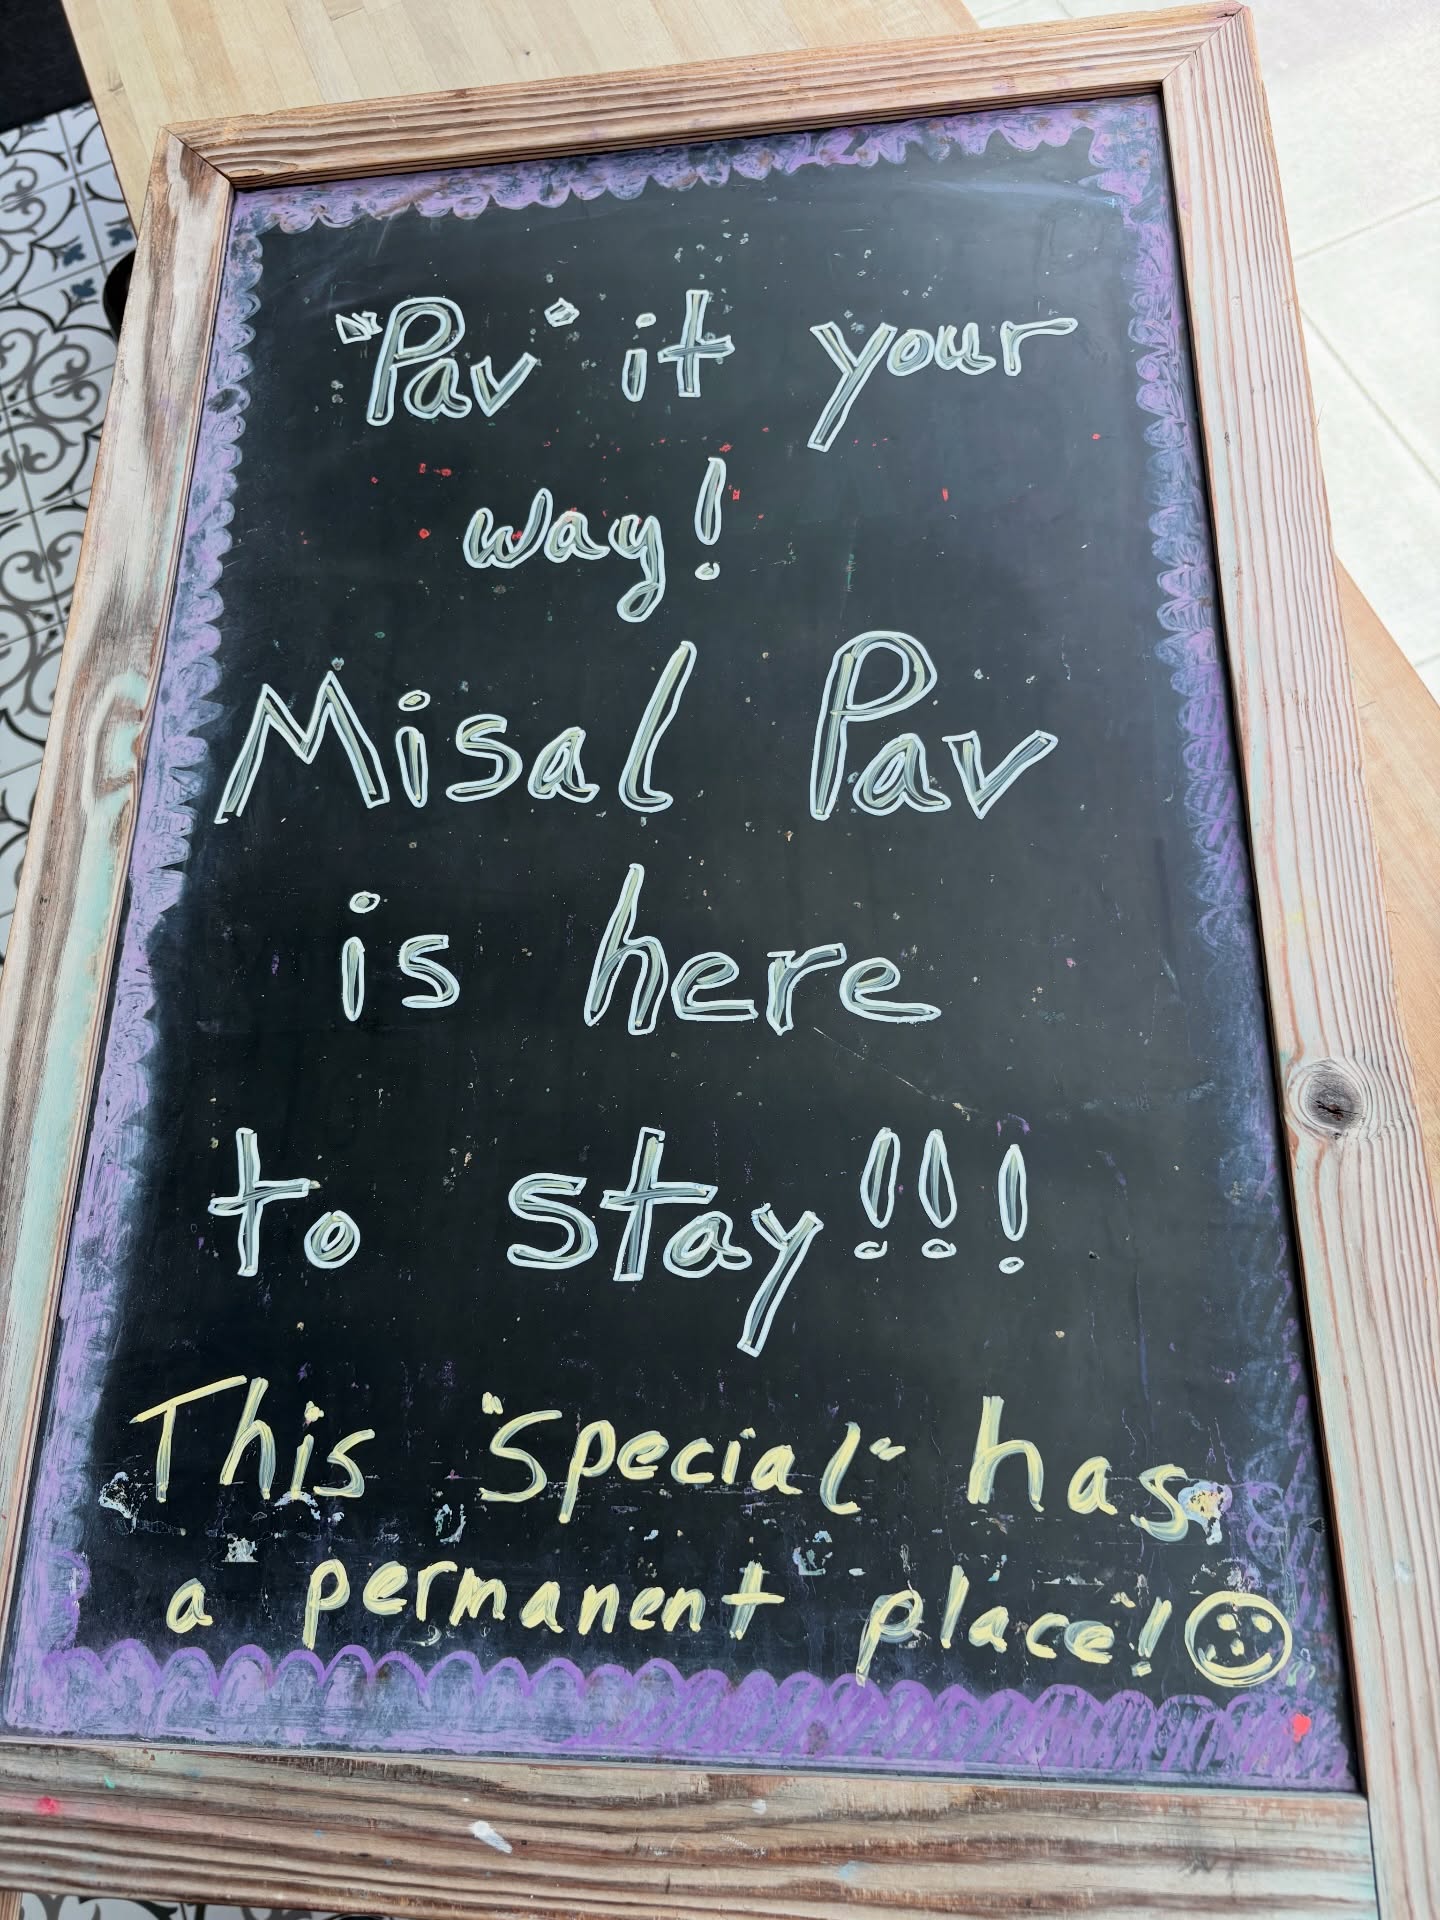 "Pav" it your
way!
Misal Pav
is here
to stay!!!
This "Special" has
a permanent place!